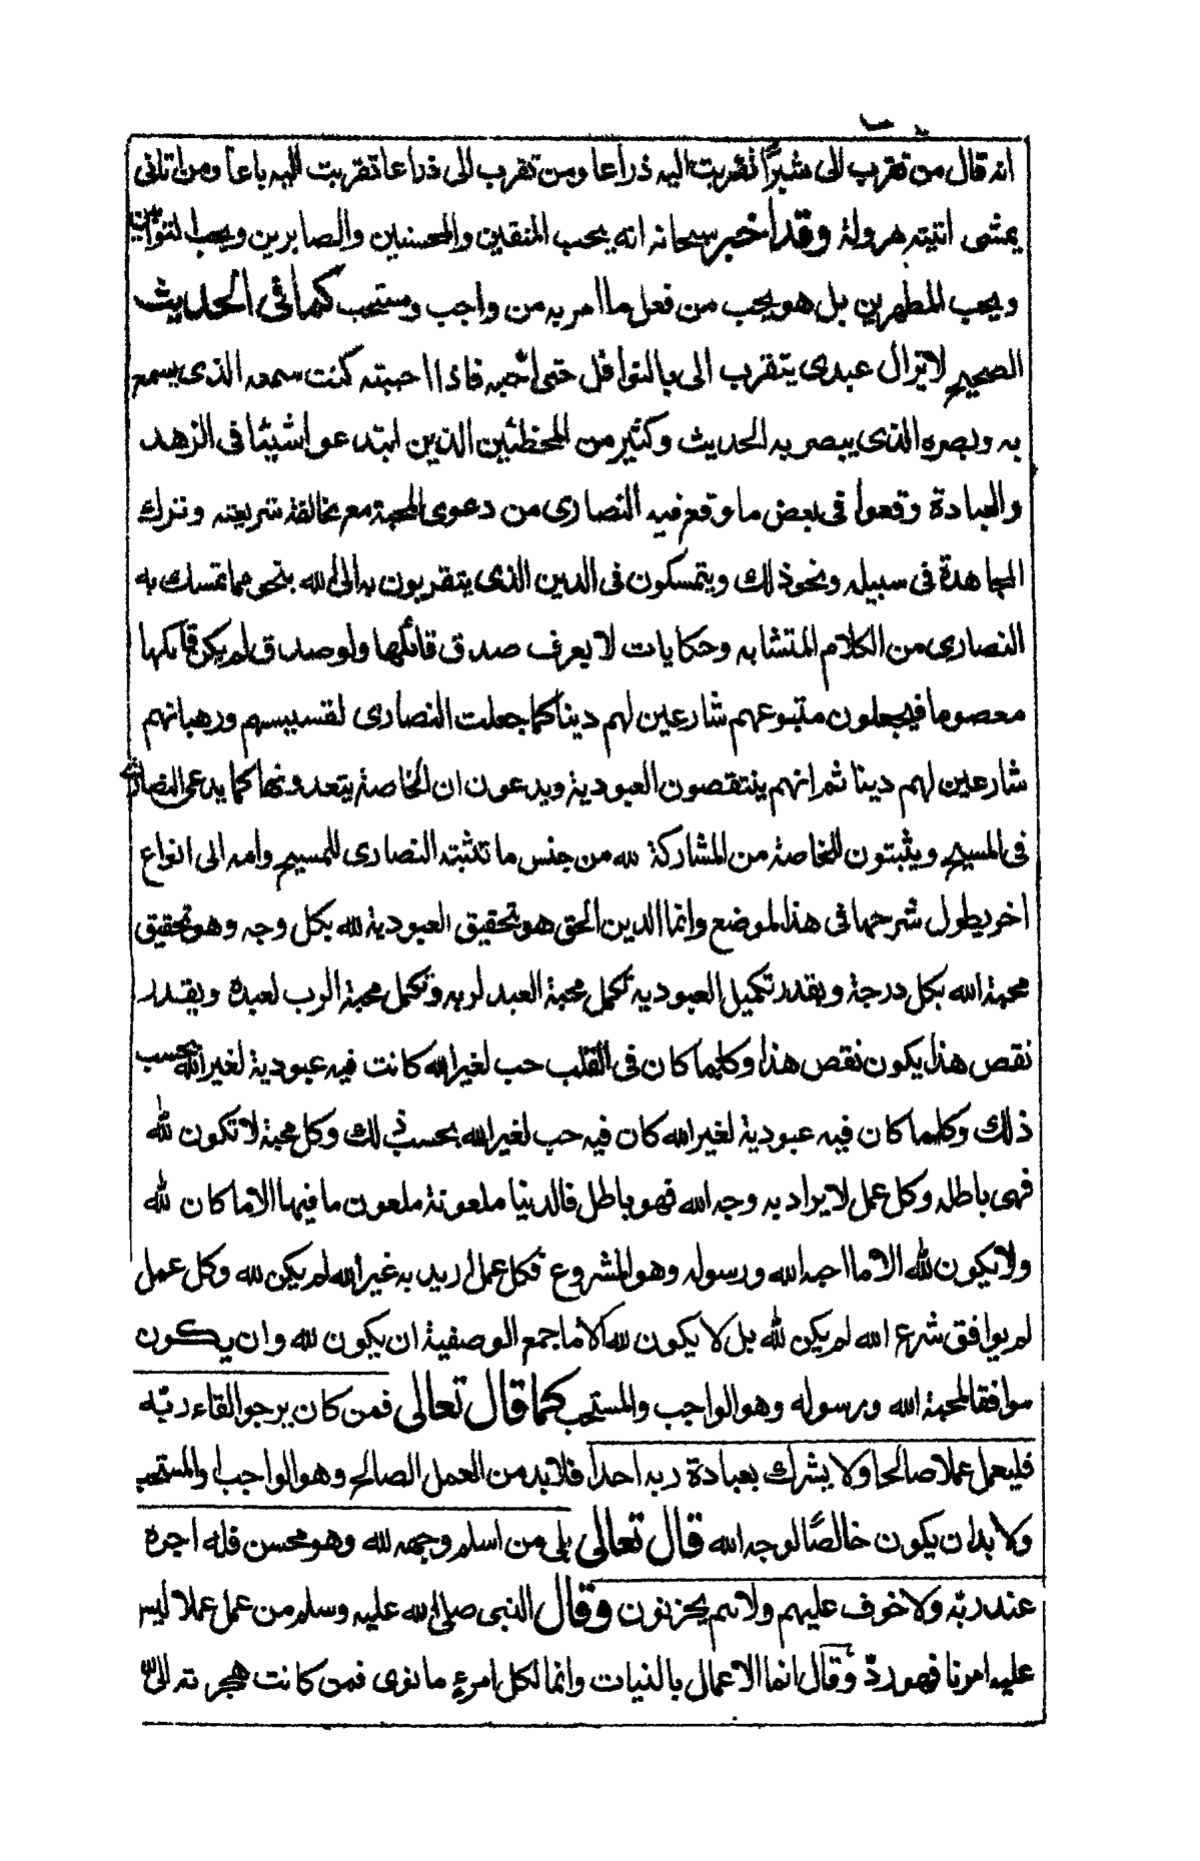 انه قال من تقرب الى شبرًا تقربت اليه ذراعا ومن تقرب الى ذراعا تقربت اليه باعا ومن اتانى
يمشى اتيته هرولة وقد اخبر سبحانه انه يحب المتقين والمحسنين والصابرين ويحب التوابين
ويحب المطهرين بل هو يحب من فعل ما امر به من واجب ومستحب كما فى الحديث
الصحيح لا يزال عبدى يتقرب الى بالنوافل حتى احبه فاذا احببته كنت سمعه الذى يسمع
به وبصره الذى يبصر به الحديث وكثير من المخطئين الذين ابتدعوا اشيئا فى الزهد
والعبادة وقعوا فى بعض ما وقع فيه النصارى من دعوى المحبة مع مخالفة شريعته وترك
المجاهدة فى سبيله ونحو ذلك ويتمسكون فى الدين الذى يتقربون به الى الله بنحو مما تمسك به
النصارى من الكلام المتشابه وحكايات لا يعرف صدق قائلها ولو صدق لم يكن قائلها
معصوما فيجعلون متبوعهم شارعين لهم دينا كما جعلت النصارى لقسيسيهم ورهبانهم
شارعين لهم دينا ثم انهم ينتقصون العبودية ويدعون ان الخاصة يتعدونها كما يدعى النصارى
فى المسيح ويثبتون للخاصة من المشاركة لله من جنس ما تثبته النصارى للمسيح وامه الى انواع
اخر يطول شرحها فى هذا الموضع وانما الدين الحق هو تحقيق العبودية لله بكل وجه وهو تحقيق
محبة الله بكل درجة وبقدر تكميل العبودية تكمل محبة العبد لربه وتكمل محبة الرب لعبده وبقدر
نقص هذا يكون نقص هذا وكلما كان فى القلب حب لغير الله كانت فيه عبودية لغير الله بحسب
ذلك وكلما كان فيه عبودية لغير الله كان فيه حب لغير الله بحسب ذلك وكل محبة لا تكون لله
فهى باطله وكل عمل لا يراد به وجه الله فهو باطل فالدنيا ملعونة ملعون ما فيها الا ما كان لله
ولا يكون لله الا ما احبه الله ورسوله وهو المشروع فكل عمل اريد به غير الله لم يكن لله وكل عمل
لم يوافق شرع الله لم يكن لله بل لا يكون لله الا ما جمع الوصفية ان يكون لله وان يكون
موافقا لمحبة الله ورسوله وهو الواجب والمستحب كما قال تعالى فمن كان يرجوا لقاء ربّه
فليعمل عملا صالحا ولا يشرك بعبادة ربه احدا فلا بد من العمل الصالح وهو الواجب والمستحب
ولا بد ان يكون خالصًا لوجه الله قال تعالى بلى من اسلم وجهه لله وهو محسن فله اجره
عند ربّه ولا خوف عليهم ولا هم يحزنون وقال النبى صلى الله عليه وسلم من عمل عملا ليس
عليه امرنا فهو ردّ وقال انما الاعمال بالنيات وانما لكل امرءٍ ما نوى فمن كانت هجرته الى الله